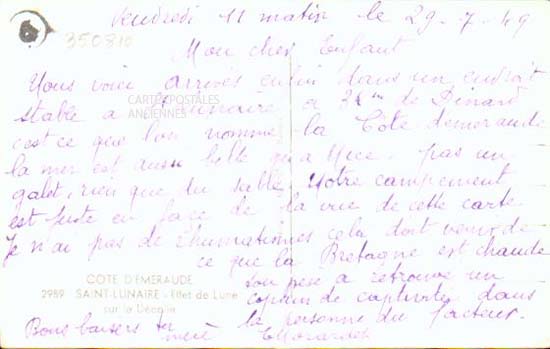 Vendredi 11 matin le 29-7-49
350810
Mon cher Enfant
Nous voici arrivés enfin dans un endroit
stable a St Lunaire a 3 km de Dinard
CARTES POSTALES
ANCIENNES
c'est ce que l'on nomme la Côte d'emeraude
la mer est aussi belle qu'a Nice. pas un
galet, rien que du sable. Notre campement
est juste en face de la vue de cette carte
Je n'ai pas de rhumatismes cela doit venir de
ce que la Bretagne est chaude
CÔTE D'ÉMERAUDE
2989 SAINT-LUNAIRE - Effet de Lune
sur le Décollé
ton pere a retrouvé un
copain de captivité dans
la personne du facteur.
Bons baisers ta
mère